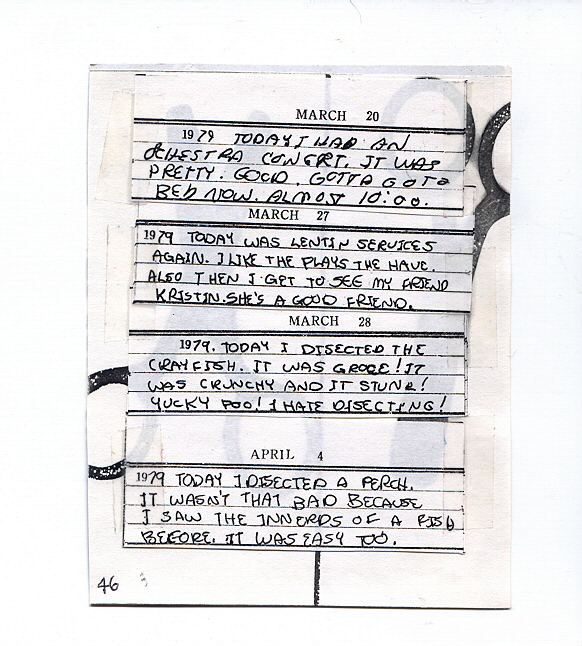 MARCH 20
1979 TODAY I HAD AN
OCHESTRA CONCERT. IT WAS
PRETTY. GOOD. GOTTA GOTO
BED NOW. ALMOST 10:00.
MARCH 27
1979 TODAY WAS LENTIN SERVICES
AGAIN. I LIKE THE PLAYS THE HAVE.
ALSO THEN I GET TO SEE MY FRIEND
KRISTIN. SHE'S A GOOD FRIEND.
MARCH 28
1979. TODAY I DISECTED THE
CRAYFISH. IT WAS GROCE! IT
WAS CRUNCHY AND IT STUNK!
YUCKY POO! I HATE DISECTING!
APRIL 4
1979 TODAY I DISECTED A PERCH.
IT WASN'T THAT BAD BECAUSE
I SAW THE INNERDS OF A FISH
BEFORE. IT WAS EASY TOO.
46 3